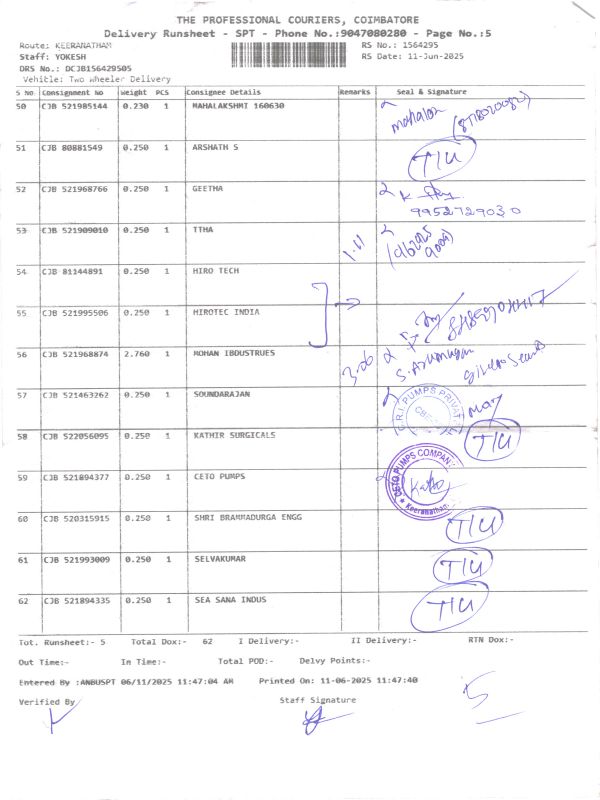 THE PROFESSIONAL COURIERS, COIMBATORE
Delivery Runsheet - SPT - Phone No.:9047080280 - Page No.:5
Route: KEERANATHAM
RS No.: 1564295
Staff: YOKESH
RS Date: 11-Jun-2025
DRS No.: DCJB156429505
Vehicle: Two Wheeler Delivery
S No Consignment No Weight PCS Consignee Details Remarks Seal & Signature
50 CJB 521985144 0.230 1 MAHALAKSHMI 160630
51 CJB 80881549 0.250 1 ARSHATH S T/U
52 CJB 521968766 0.250 1 GEETHA
9952729030
53 CJB 521909010 0.250 1 TTHA 1.11
54 CJB 81144891 0.250 1 HIRO TECH
55 CJB 521995506 0.250 1 HIROTEC INDIA
56 CJB 521968874 2.760 1 MOHAN IBDUSTRUES
57 CJB 521463262 0.250 1 SOUNDARAJAN
C.R.I. PUMPS PRIVAT
58 CJB 522056095 0.250 1 KATHIR SURGICALS T/U
59 CJB 521894377 0.250 1 CETO PUMPS
CETO PUMPS COMPAN
Keeranatham
60 CJB 520315915 0.250 1 SHRI BRAMMADURGA ENGG T/U
61 CJB 521993009 0.250 1 SELVAKUMAR T/U
62 CJB 521894335 0.250 1 SEA SANA INDUS T/U
Tot. Runsheet:- 5 Total Dox:- 62 I Delivery:- II Delivery:- RTN Dox:-
Out Time:- In Time:- Total POD:- Delvy Points:-
Entered By :ANBUSPT 06/11/2025 11:47:04 AM Printed On: 11-06-2025 11:47:40
5
Verified By Staff Signature